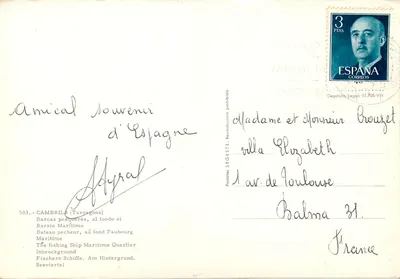 3
PTAS
ESPAÑA
CORREOS
Amical souvenir
d'Espagne
Madame et Monsieur
villa Elizabeth
1 av. de Toulouse
Balma 31.
France
503.- CAMBRILS (Tarragona)
Barcas pesqueras, al fondo el
Barrio Marítimo
Bateau pecheur, ad fond Faubourg
Maritime
The fishing Ship Maritime Quartier
inbackground
Fischers Schiffe, Am Hintergrund,
Seeviertel